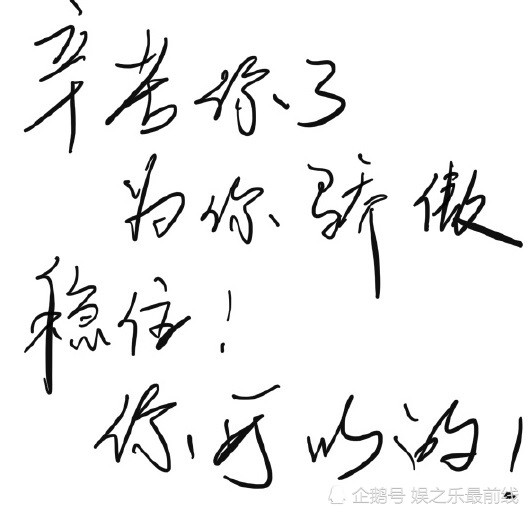 辛苦你了
为你骄傲
稳住!
你可以的!
企鹅号 娱之乐最前线